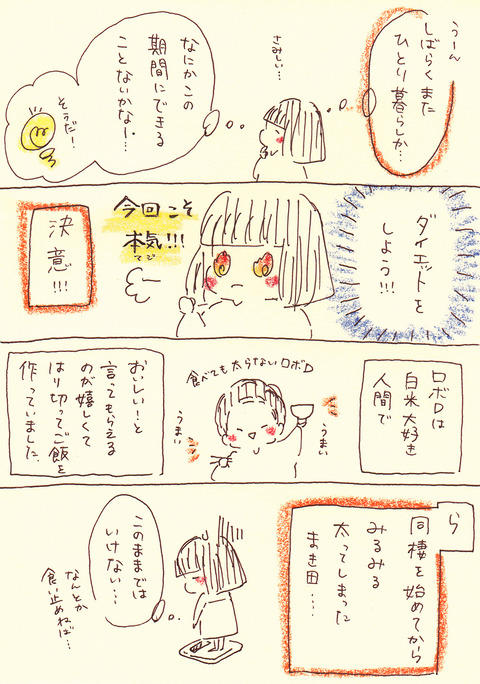 うーん
しばらくまた
ひとり暮らしか…
さみしい…
なにかこの
期間にできる
ことないかなー・・
そうだー!
ダイエットを
しよう!!!
今回こそ
本気!!!
マジ
決意!!!
ロボロは
白米大好き
人間で
食べても太らないロボロ
うまい
うまい
おいしい!と
言ってもらえる
のが嬉しくて
はり切ってご飯を
作っていました。
ら
同棲を始めてから
みるみる
太ってしまった
まき田……
このままでは
いけない…・
なんとか
食い止めねば…